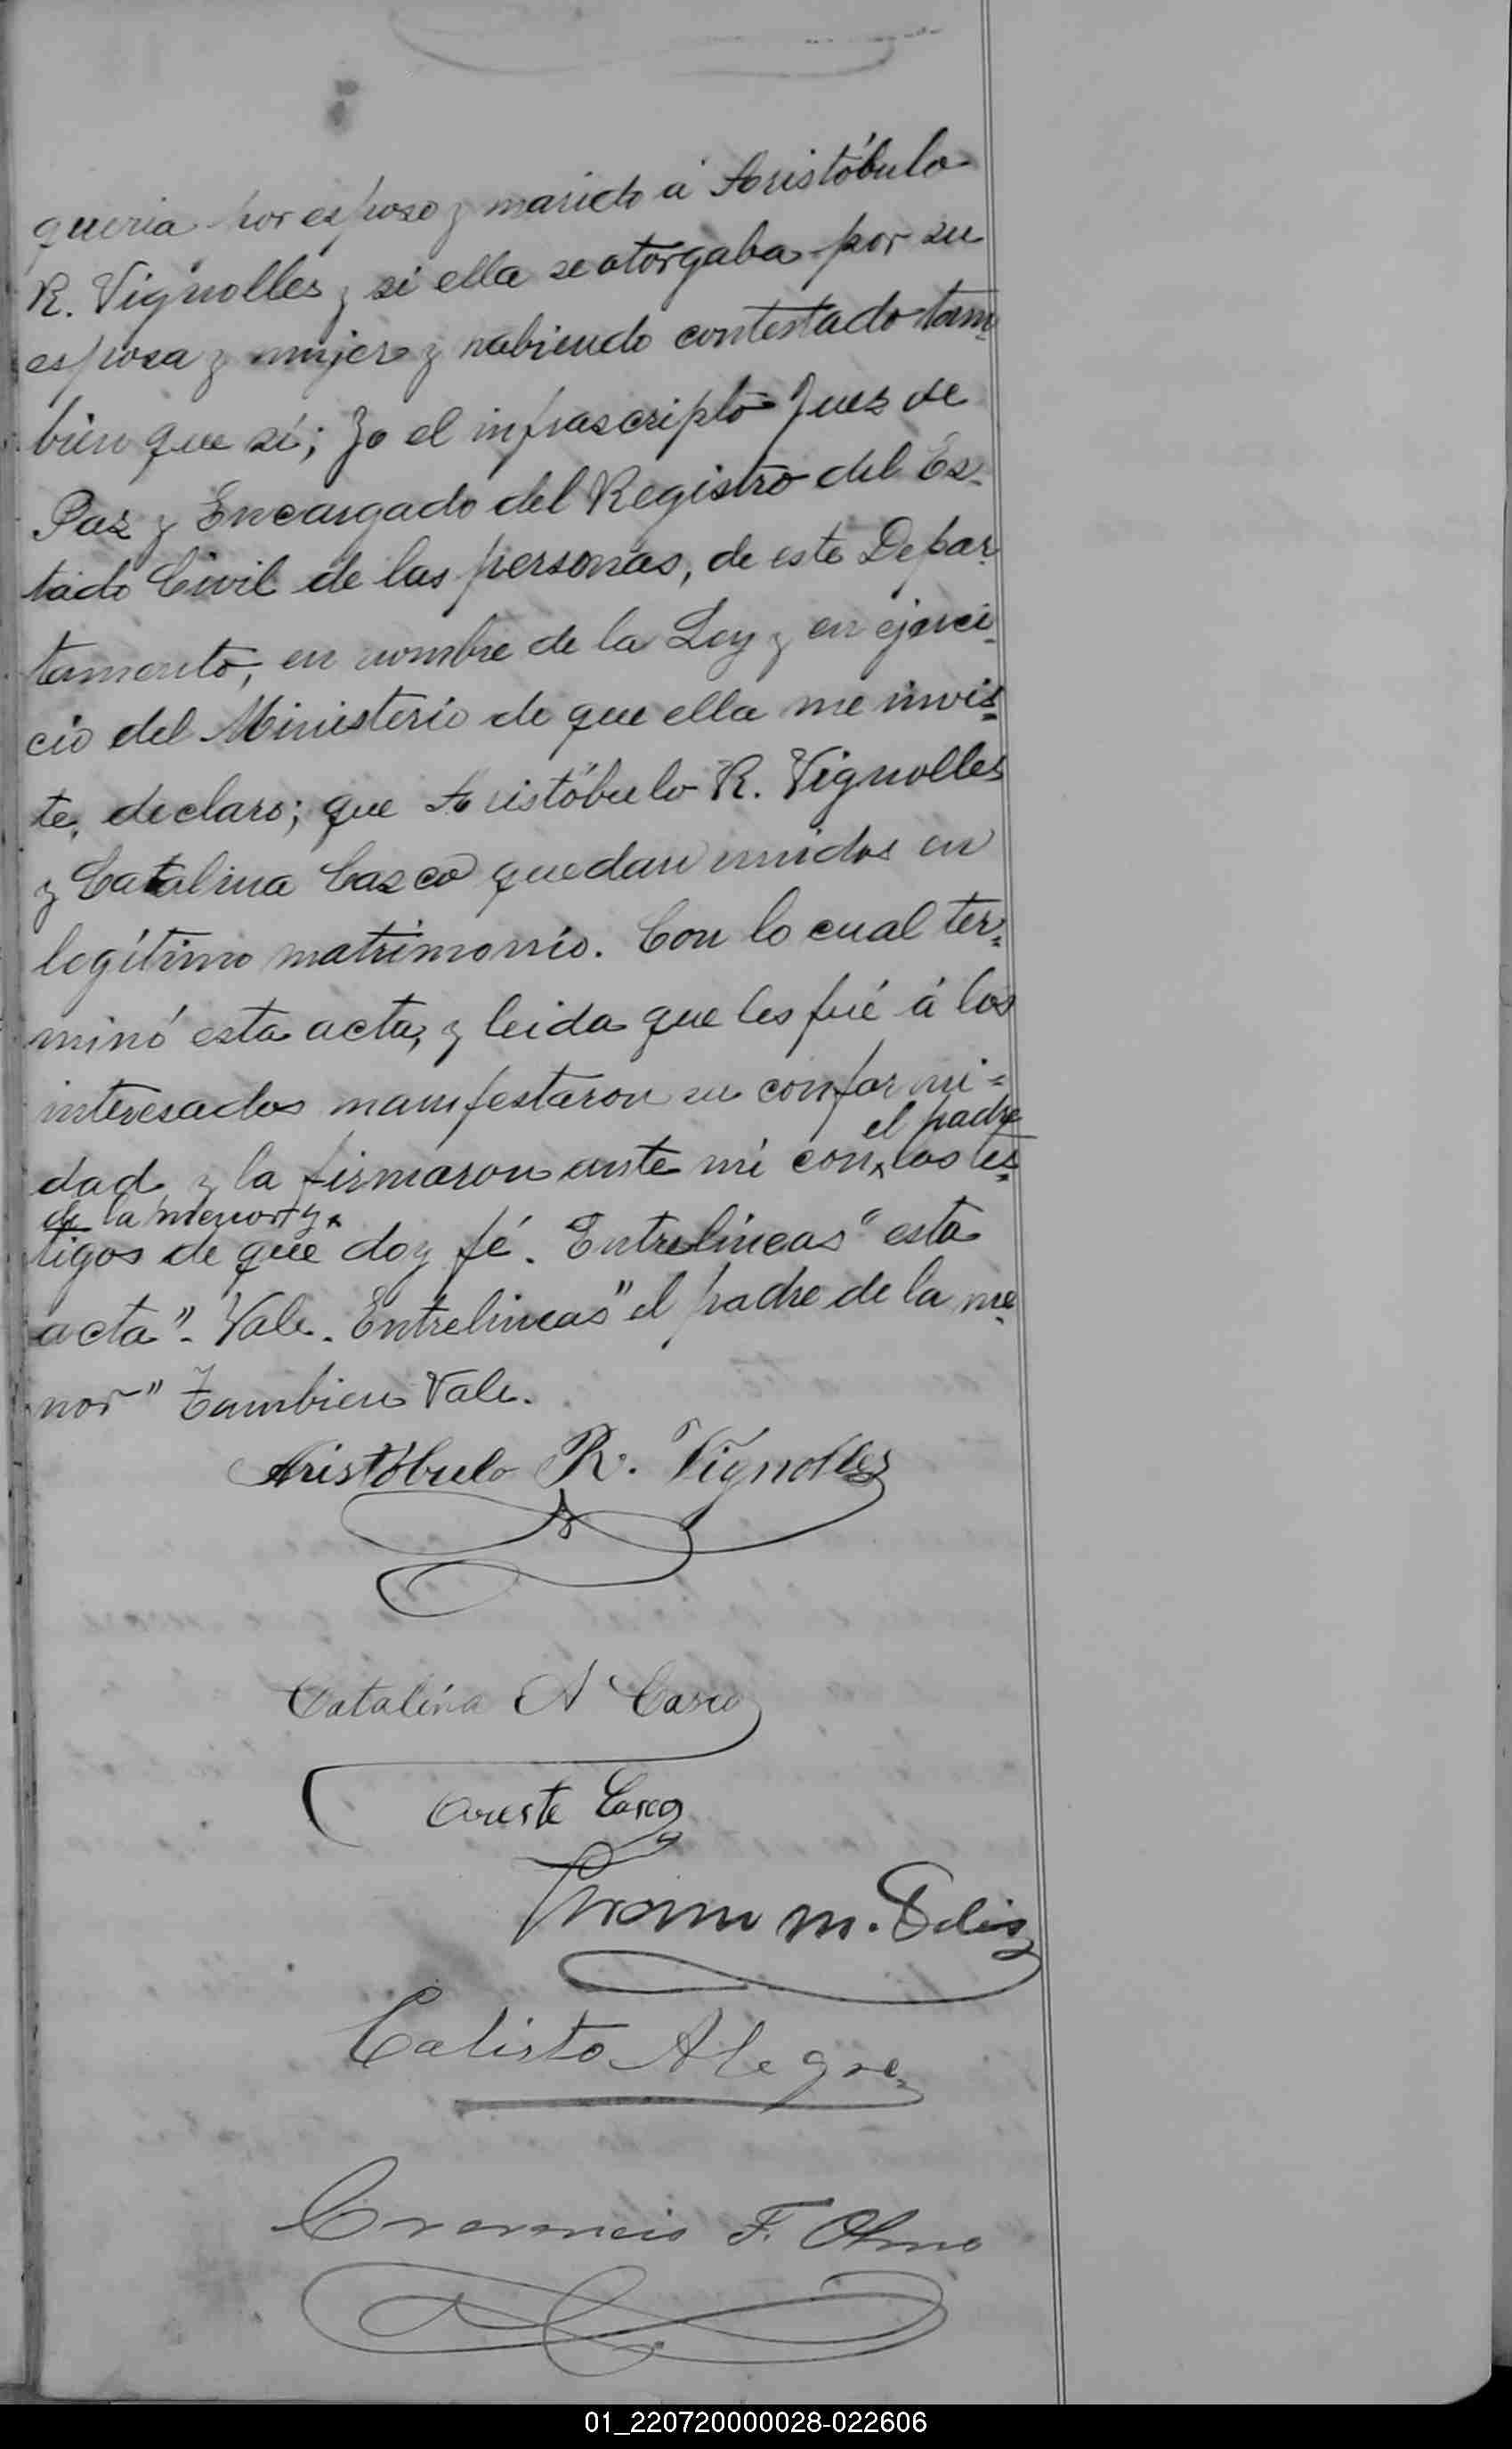 queria por esposo y marido á Aristóbulo
R. Vignolles y si ella se otorgaba por su
esposa y mujer y habiendo contestado tam-
bien que sí; Yo el infrascripto Juez de
Paz y Encargado del Registro del Es-
tado Civil de las personas, de este Depar-
tamento, en nombre de la Ley y en ejerci-
cio del Ministerio de que ella me invis=
te, declaro; que Aristóbulo R. Vignolles
y Catalina Casco quedan unidos en
legítimo matrimonio. Con lo cual ter=
minó esta acta, y leida que les fué á los
interesados manifestaron su conformi=
el padre
dad y la firmaron ante mi con los tes=
de la menor y
tigos de que doy fé. Entrelineas "esta
acta". Vale. Entrelineas "el padre de la me-
nor" Tambien Vale.
Aristóbulo R. Vignolles
Catalina A Casco
Oreste Casco
m.
Calisto Alegre
F. Olmo
01_220720000028-022606